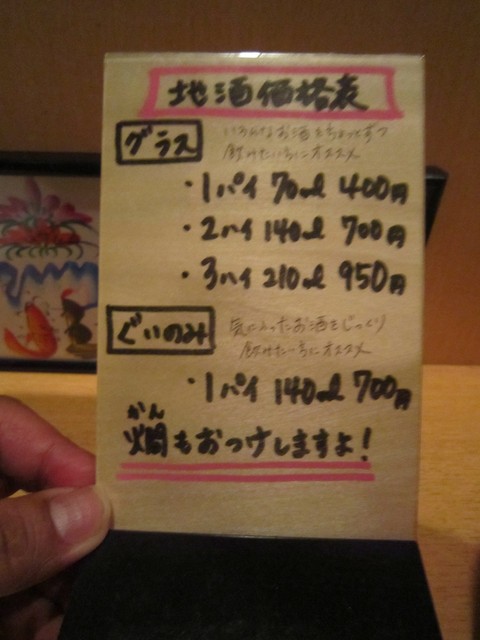 地酒価格表
グラス
いろんなお酒をちょっとずつ
飲みたい方にオススメ
・1パイ 70ml 400円
・2ハイ 140ml 700円
・3バイ 210ml 950円
ぐいのみ
気に入ったお酒をじっくり
飲みたい方にオススメ
・1パイ 140ml 700円
かん
燗もおつけしますよ!